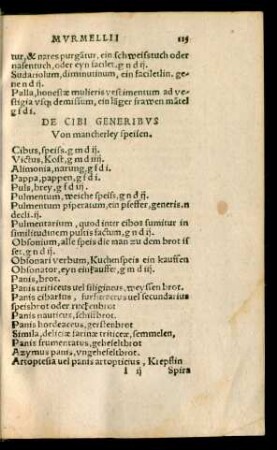 MVRMELLII 115
tur, & nares purgãtur, ein schweisstuch oder
nasentuch, oder eyn facilet. g n d ij.
Sudariolum, diminutiuum, ein faciletlin. ge
ne n d ij.
Palla, honestæ mulieris vestimentum ad ve
stigia vsq; demissum, ein läger frawen mãtel
g f d i.
DE CIBI GENERIBVS
Von mancherley speisen.
Cibus, speiss. g m d ij.
Victus, Kost, g m d iiij
Alimonia, narung, g f d i.
Pappa, pappen, g f d i.
Puls, brey, g f d iij
Pulmentum, weiche speiss, g n d ij.
Pulmentum piperatum, ein pfeffer, generis. n
decli. ij.
Pulmentarium, quod inter cibos sumitur in
similitudinem pultis factum, g n d ij.
Obsonium, alle speis die man zu dem brot is
set, g n d ij.
Obsonari verbum, Kuchenspeis ein kauffen
Obsonator, eyn einkauffer, g m d iij
Panis, brot.
Panis triticeus uel siligineus, weyssen brot.
Panis cibarius, furfuraceus uel secundarius
speisbrot oder
Panis nauticus, schifbrot.
Panis hordeaceus, gerstenbrot
Simila, deliciæ farinæ triticeæ, semmelen,
Panis frumentatus, gehefeltbrot
Azymus panis, vngehefeltbrot.
Artoptesia uel panis artopticius, Krepflin
I ij Spira